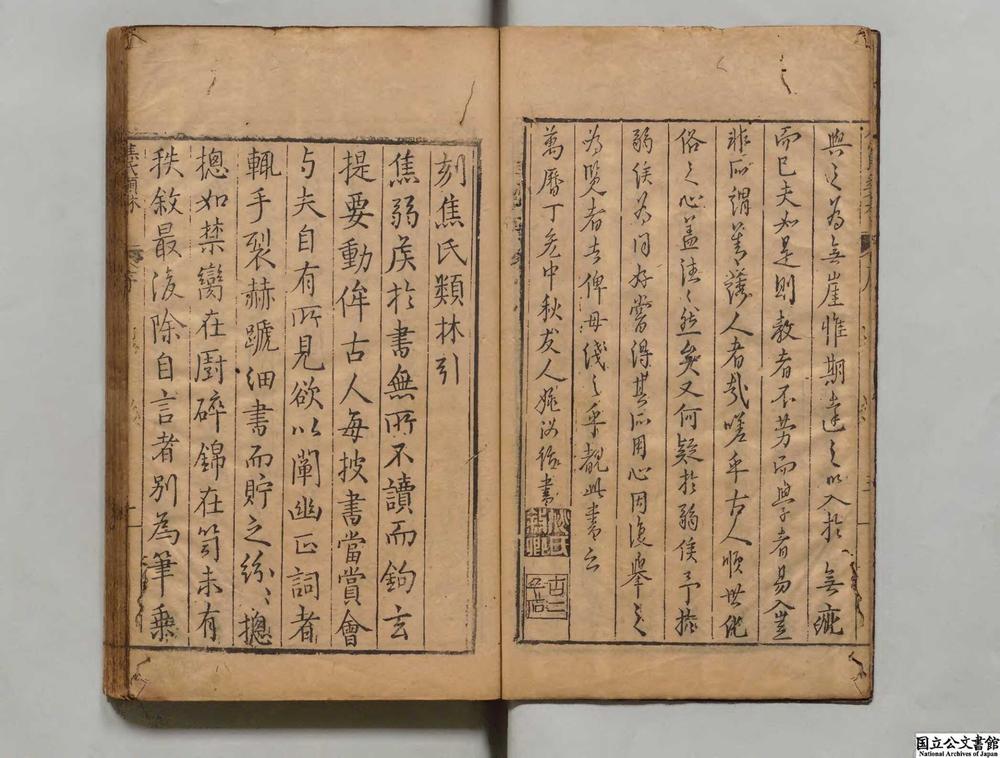 與之為無崖惟期達之以入於無疵
而已夫如是則教者不勞而學者易入豈
非所謂善誘人者哉嗟乎古人順世化
俗之心盖往往然矣又何疑於弱侯予於
弱侯為同好嘗得其所用心因復舉之
為覽者告俾毋淺之乎觀此書云
萬曆丁亥中秋友人姚汝紹書
姚氏
刻焦氏類林引
焦弱侯於書無所不讀而鉤玄
提要動侔古人每披書當賞會
与夫自有所見欲以闡幽正詞者
輒手裂赫蹏細書而貯之紛紛摠
摠如禁臠在厨碎錦在笥未有
秩敘最後除自言者別為筆乗
焦氏類林
国立公文書館
National Archives of Japan